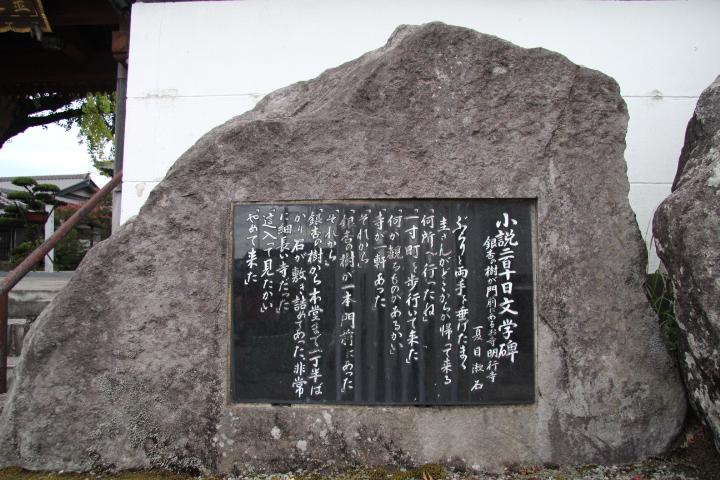 小説二百十日文学碑
銀杏の樹が門前にあるお寺 明行寺
夏目漱石
ぶらりと両手を垂げたまま、
圭さんがどこからか帰って来る
「何所へ行ったね」
「一寸町を歩行いて来た」
「何か観るものがあるかい」
「寺が一軒あった」
「それから」
「銀杏の樹が一本門前にあった」
「それから」
「銀杏の樹から本堂まで一丁半ば
かり石が敷き詰めてあった、非常
に細長い寺だった」
「這入って見たかい」
「やめて来た」